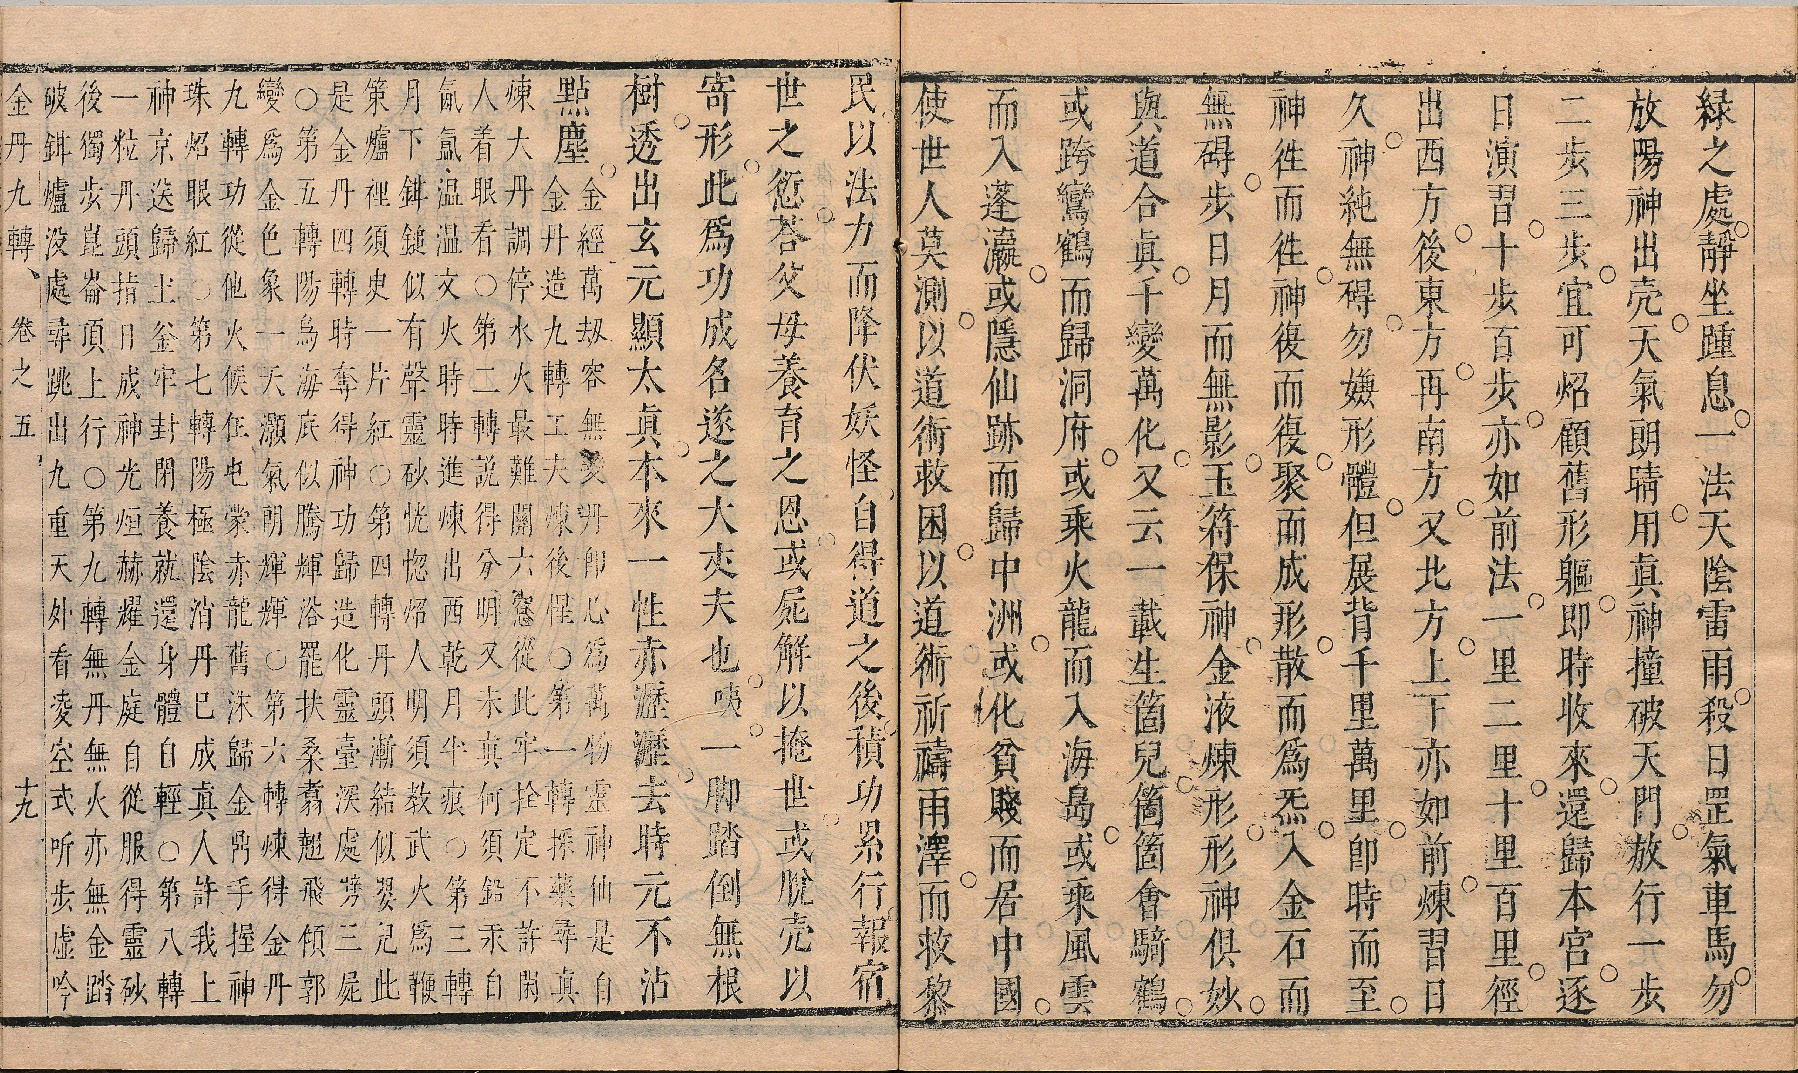 緑之處靜坐踵息一法天陰雷雨殺日罡氣車馬勿
放陽神出壳天氣朗晴用眞神撞破天門放行一步
二步三步宜可炤顧舊形軀即時收來還歸本宮逐
日演習十步百步亦如前法一里二里十里百里徑
出西方後東方再南方又北方上下亦如前煉習日
久神純無碍勿嫌形體但展背千里萬里卽時而至
神徃而徃神復而復聚而成形散而爲炁入金石而
無碍步日月而無影玉符保神金液煉形形神俱妙
與道合眞千變萬化又云一載生箇兒箇箇會騎鶴
或跨鸞鶴而歸洞府或乘火龍而入海島或乘風雲
而入蓬瀛或隱仙跡而歸中洲或化貧賤而居中國
使世人莫測以道術救困以道術祈禱雨澤而救黎
民以法力而降伏妖怪自得道之後積功累行報宿
世之愆荅父母養育之恩或屍解以掩世或脫壳以
寄形此爲功成名遂之大丈夫也咦一脚踏倒無根
樹透出玄元顯太眞本來一性赤瀝瀝去時元不沾
點塵金經萬刼容無丹卽心爲萬物靈神仙是自
金丹造九轉工夫煉後惺○第一轉採藥尋眞
煉大丹調停水火最難關六窓從此牢拴定不許閑
人着眼看○第二轉說得分明又未眞何須鉛汞自
氤氳溫溫文火時時進煉出西乾月半痕○第三轉
月下鉗鎚似有聲靈砂恍惚炤人明須教武火爲鞭
策爐裡須臾一片紅○第四轉丹頭漸結似嬰兒此
是金丹四轉時奪得神功歸造化靈臺深處勞三屍
○第五轉陽烏海底似騰輝浴罷扶桑翥翅飛傾郭
變爲金色象一天灝氣朗輝輝○第六轉煉得金丹
九轉功從他火候在屯蒙赤龍舊洙歸金鼎手握神
珠炤眼紅○第七轉陽極陰消丹巳成眞人許我上
神京送歸土釜牢封閉養就還身體自輕○第八轉
一粒丹頭指日成神光烜赫耀金庭自從服得靈砂
後獨步崑崙頂上行○第九轉無丹無火亦無金踏
破鉗爐沒處尋跳出九重天外看凌空式听步虛吟
金丹九轉 卷之五 十九